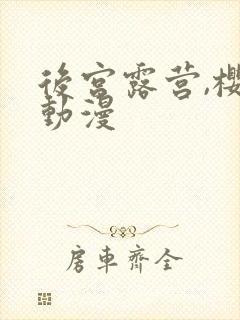 後宮露营,櫻
動漫
房車齊全